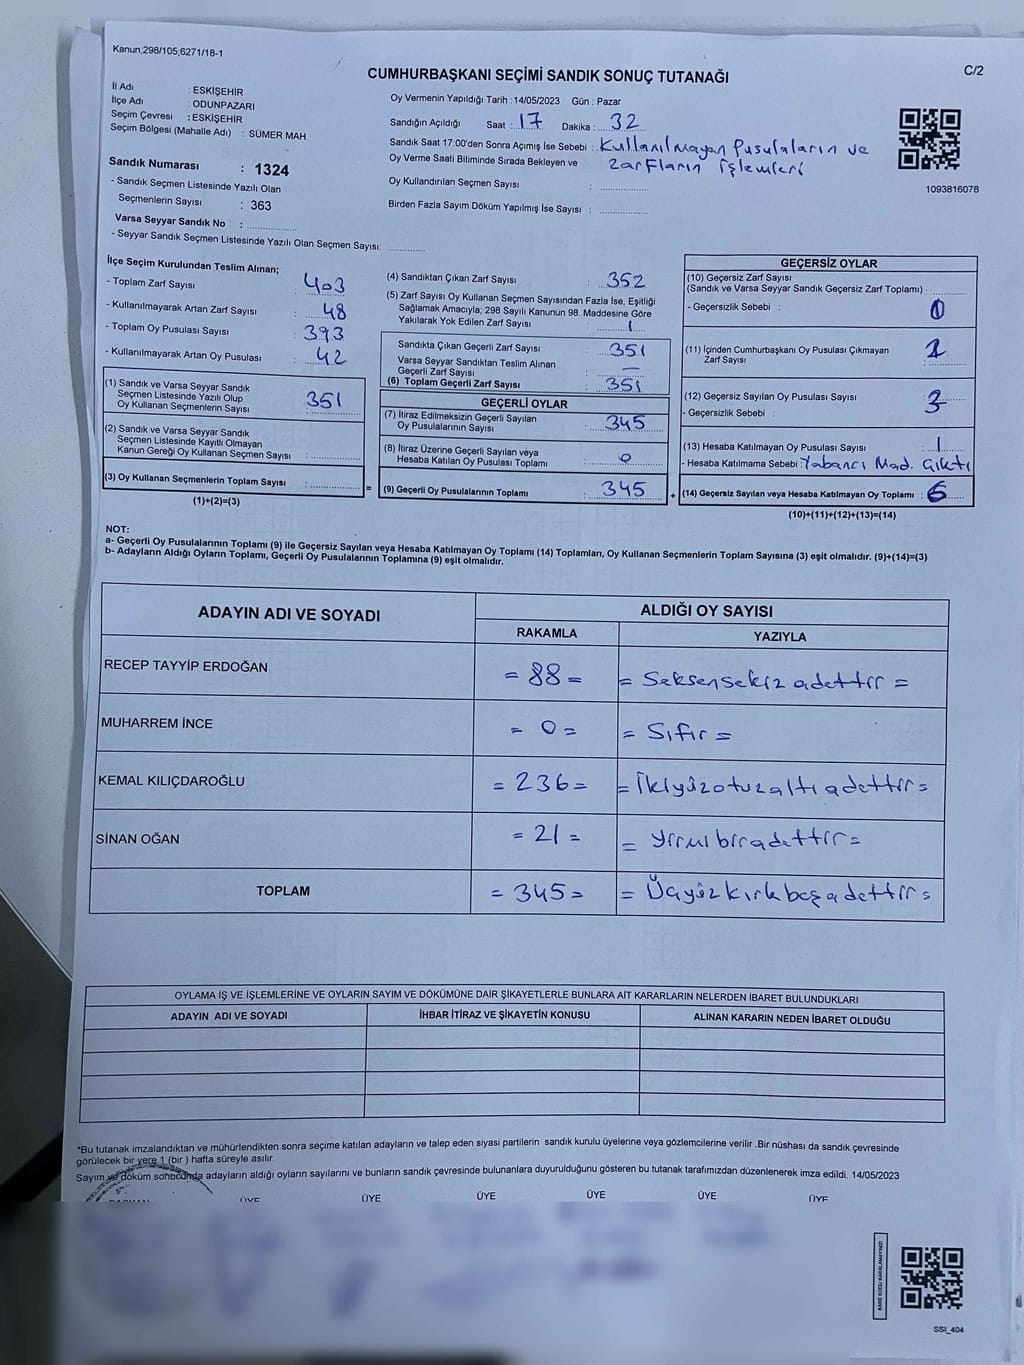 Kanun;298/105,6271/18-1
C/2
CUMHURBAŞKANI SEÇİMİ SANDIK SONUÇ TUTANAĞI
İl Adı : ESKİŞEHİR
İlçe Adı : ODUNPAZARI
Seçim Çevresi : ESKİŞEHİR
Seçim Bölgesi (Mahalle Adı) : SÜMER MAH
Oy Vermenin Yapıldığı Tarih : 14/05/2023 Gün : Pazar
Sandığın Açıldığı Saat : 17 Dakika : 32
Sandık Saat 17:00'den Sonra Açımış İse Sebebi : Kullanılmayan Pusulaların ve
Oy Verme Saati Bitiminde Sırada Bekleyen ve zarfların işlemleri
Oy Kullandırılan Seçmen Sayısı :
Birden Fazla Sayım Döküm Yapılmış İse Sayısı :
1093816078
Sandık Numarası : 1324
- Sandık Seçmen Listesinde Yazılı Olan
Seçmenlerin Sayısı : 363
Varsa Seyyar Sandık No :
- Seyyar Sandık Seçmen Listesinde Yazılı Olan Seçmen Sayısı:
İlçe Seçim Kurulundan Teslim Alınan;
- Toplam Zarf Sayısı : 403
- Kullanılmayarak Artan Zarf Sayısı : 48
- Toplam Oy Pusulası Sayısı : 393
- Kullanılmayarak Artan Oy Pusulası : 42
(1) Sandık ve Varsa Seyyar Sandık
Seçmen Listesinde Yazılı Olup
Oy Kullanan Seçmenlerin Sayısı : 351
(2) Sandık ve Varsa Seyyar Sandık
Seçmen Listesinde Kayıtlı Olmayan
Kanun Gereği Oy Kullanan Seçmen Sayısı :
(3) Oy Kullanan Seçmenlerin Toplam Sayısı :
(1)+(2)=(3)
=
(4) Sandıktan Çıkan Zarf Sayısı : 352
(5) Zarf Sayısı Oy Kullanan Seçmen Sayısından Fazla İse, Eşitliği
Sağlamak Amacıyla; 298 Sayılı Kanunun 98. Maddesine Göre
Yakılarak Yok Edilen Zarf Sayısı : 1
Sandıkta Çıkan Geçerli Zarf Sayısı : 351
Varsa Seyyar Sandıktan Teslim Alınan
Geçerli Zarf Sayısı : —
(6) Toplam Geçerli Zarf Sayısı : 351
GEÇERLİ OYLAR
(7) İtiraz Edilmeksizin Geçerli Sayılan
Oy Pusulalarının Sayısı : 345
(8) İtiraz Üzerine Geçerli Sayılan veya
Hesaba Katılan Oy Pusulası Toplamı : 0
(9) Geçerli Oy Pusulalarının Toplamı : 345
+
GEÇERSİZ OYLAR
(10) Geçersiz Zarf Sayısı
(Sandık ve Varsa Seyyar Sandık Geçersiz Zarf Toplamı) :
- Geçersizlik Sebebi : 0
(11) İçinden Cumhurbaşkanı Oy Pusulası Çıkmayan
Zarf Sayısı : 2
(12) Geçersiz Sayılan Oy Pusulası Sayısı : 3
- Geçersizlik Sebebi :
(13) Hesaba Katılmayan Oy Pusulası Sayısı : 1
- Hesaba Katılmama Sebebi : Yabancı Mad. çıktı
(14) Geçersiz Sayılan veya Hesaba Katılmayan Oy Toplamı : 6
(10)+(11)+(12)+(13)=(14)
NOT:
a- Geçerli Oy Pusulalarının Toplamı (9) ile Geçersiz Sayılan veya Hesaba Katılmayan Oy Toplamı (14) Toplamları, Oy Kullanan Seçmenlerin Toplam Sayısına (3) eşit olmalıdır. (9)+(14)=(3)
b- Adayların Aldığı Oyların Toplamı, Geçerli Oy Pusulalarının Toplamına (9) eşit olmalıdır.
ADAYIN ADI VE SOYADI
ALDIĞI OY SAYISI
RAKAMLA YAZIYLA
RECEP TAYYİP ERDOĞAN = 88 = = Seksensekiz adettir =
MUHARREM İNCE = 0 = = Sıfır =
KEMAL KILIÇDAROĞLU = 236 = = İkiyüzotuzaltı adettir =
SİNAN OĞAN = 21 = = yirmibir adettir =
TOPLAM = 345 = = Üçyüzkırkbeş adettir =
OYLAMA İŞ VE İŞLEMLERİNE VE OYLARIN SAYIM VE DÖKÜMÜNE DAİR ŞİKAYETLERLE BUNLARA AİT KARARLARIN NELERDEN İBARET BULUNDUKLARI
ADAYIN ADI VE SOYADI İHBAR İTİRAZ VE ŞİKAYETİN KONUSU ALINAN KARARIN NEDEN İBARET OLDUĞU
*Bu tutanak imzalandıktan ve mühürlendikten sonra seçime katılan adayların ve talep eden siyasi partilerin sandık kurulu üyelerine veya gözlemcilerine verilir .Bir nüshası da sandık çevresinde
görülecek bir yere 1 (bir ) hafta süreyle asılır.
Sayım ve döküm sonucunda adayların aldığı oyların sayılarını ve bunların sandık çevresinde bulunanlara duyurulduğunu gösteren bu tutanak tarafımızdan düzenlenerek imza edildi. 14/05/2023
ÜYE ÜYE ÜYE ÜYE ÜYE ÜYE
KARE KODU KARALAMAYINIZ!
SSİ_404